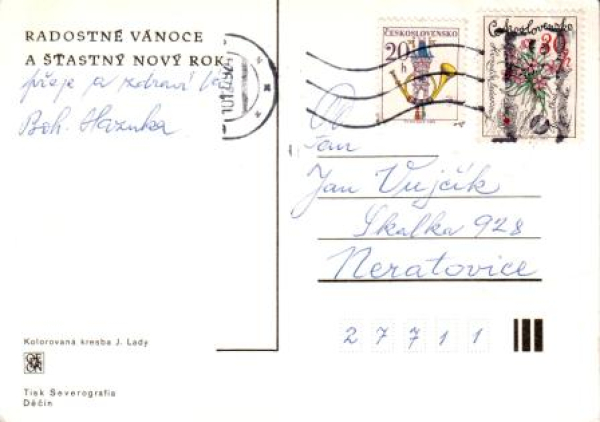 RADOSTNÉ VÁNOCE
A ŠŤASTNÝ NOVÝ ROK
přeje a zdraví
Boh. Hazuka
Kolorovaná kresba J. Lady
Tisk Severografia
Děčín
ČESKOSLOVENSKO
20 h
Československo
30 h
Jan Vujčík
Skalka 928
Neratovice
27711